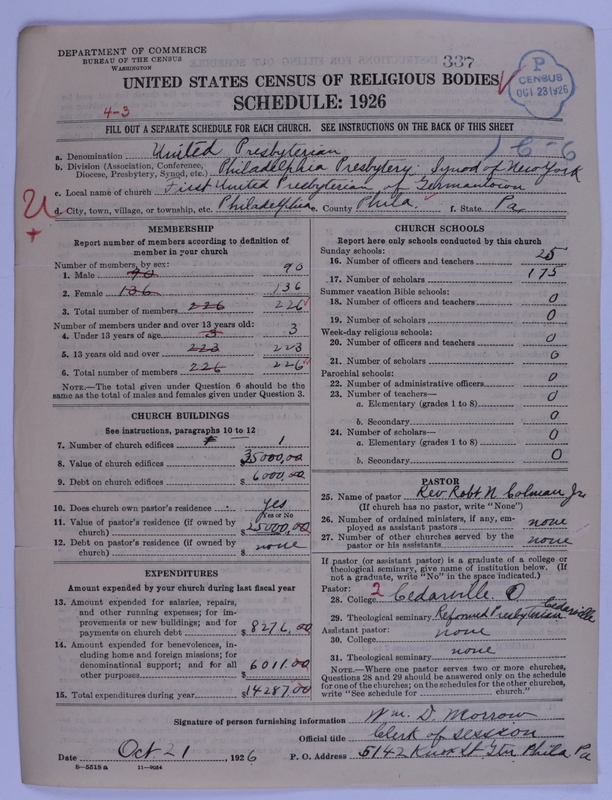 DEPARTMENT OF COMMERCE
BUREAU OF THE CENSUS
WASHINGTON
337
P
CENSUS
OCT 23 1926
UNITED STATES CENSUS OF RELIGIOUS BODIES
SCHEDULE: 1926
4-3
FILL OUT A SEPARATE SCHEDULE FOR EACH CHURCH. SEE INSTRUCTIONS ON THE BACK OF THIS SHEET
a. Denomination United Presbyterian
b. Division (Association, Conference, Diocese, Presbytery, Synod, etc.) Philadelphia Presbytery. Synod of New York
c. Local name of church First United Presbyterian of Germantown
d. City, town, village, or township, etc. Philadelphia e. County Phila. f. State Pa
MEMBERSHIP
Report number of members according to definition of
member in your church
Number of members, by sex:
1. Male 90 90
2. Female 136 136
3. Total number of members 226 226
Number of members under and over 13 years old:
4. Under 13 years of age 3 3
5. 13 years old and over 223 223
6. Total number of members 226 226
NOTE.—The total given under Question 6 should be the
same as the total of males and females given under Question 3.
CHURCH BUILDINGS
See instructions, paragraphs 10 to 12
7. Number of church edifices 1
8. Value of church edifices $ 35000,00
9. Debt on church edifices $ 6000,00
10. Does church own pastor's residence yes
Yes or No
11. Value of pastor's residence (if owned by
church) $ 25000,00
12. Debt on pastor's residence (if owned by
church) $ none
EXPENDITURES
Amount expended by your church during last fiscal year
13. Amount expended for salaries, repairs,
and other running expenses; for im-
provements or new buildings; and for
payments on church debt $ 8276,00
14. Amount expended for benevolences, in-
cluding home and foreign missions; for
denominational support; and for all
other purposes $ 6011.00
15. Total expenditures during year $ 14287.00
CHURCH SCHOOLS
Report here only schools conducted by this church
Sunday schools:
16. Number of officers and teachers 25
17. Number of scholars 175
Summer vacation Bible schools:
18. Number of officers and teachers 0
19. Number of scholars 0
Week-day religious schools:
20. Number of officers and teachers 0
21. Number of scholars 0
Parochial schools:
22. Number of administrative officers 0
23. Number of teachers—
a. Elementary (grades 1 to 8) 0
b. Secondary 0
24. Number of scholars—
a. Elementary (grades 1 to 8) 0
b. Secondary 0
PASTOR
25. Name of pastor Rev. Robt. N. Colman Jr
(If church has no pastor, write "None")
26. Number of ordained ministers, if any, em-
ployed as assistant pastors none
27. Number of other churches served by the
pastor or his assistants none
If pastor (or assistant pastor) is a graduate of a college or
theological seminary, give name of institution below. (If
not a graduate, write "No" in the space indicated.)
Pastor:
28. College 2 Cedarville. O
29. Theological seminary Reformed Presbyterian Cedarville
Assistant pastor:
30. College none
31. Theological seminary none
NOTE.—Where one pastor serves two or more churches,
Questions 28 and 29 should be answered only on the schedule
for one of the churches; on the schedules for the other churches,
write "See schedule for church."
Signature of person furnishing information Wm. D. Morrow
Official title Clerk of session
Date Oct 21, 1926 P. O. Address 5142 Knox St Gtn Phila Pa
8—5518 a 11—9034